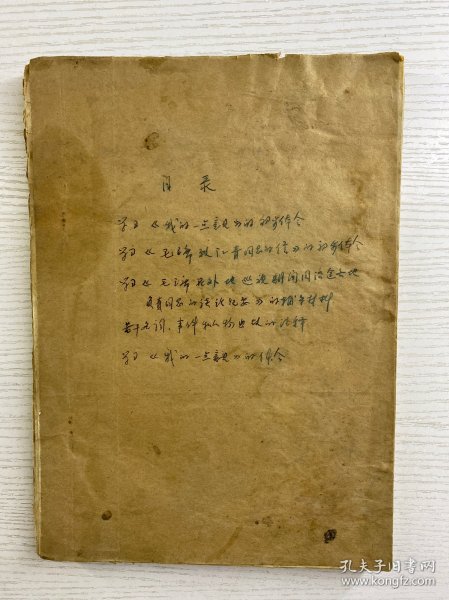 目录
学习《我的一点意见》的初步体会
学习《毛主席致江青同志的信》的初步体会
学习《毛主席在外地巡视期间同沿途各地
负责同志的谈话纪要》的辅导材料
若干名词、事件和人物出处的注释
学习《我的一点意见》的体会
孔夫子旧书网
www.kongfz.com